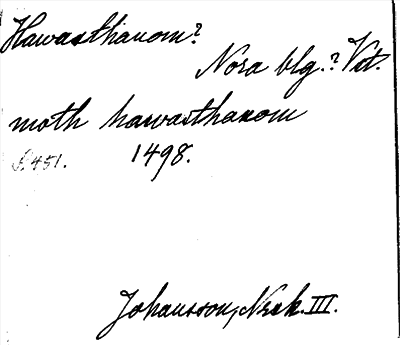 Hawasthanom?
Nora blg.? Vstm.
moth hawasthanom
S. 451. 1498.
Johansson, Nsk. III.